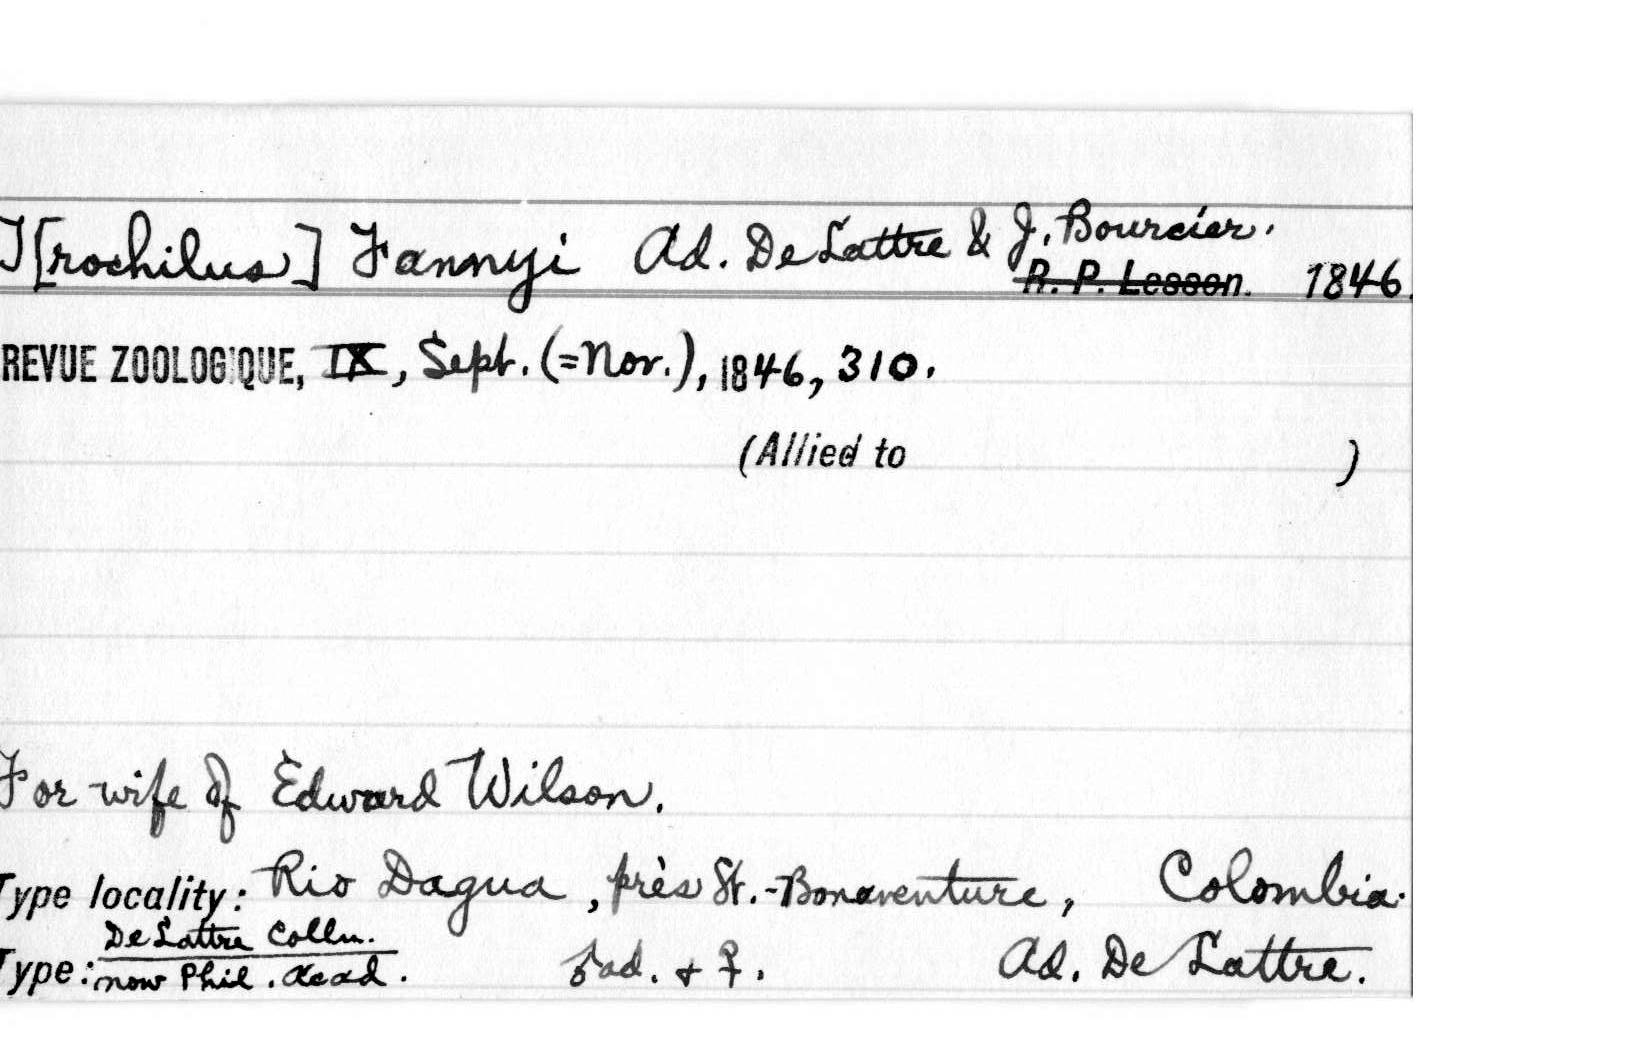 T[rochilus] Fannyi Ad. De Lattre & J. Bourcier.
R. P. Lesson. 1846.
REVUE ZOOLOGIQUE, IX, Sept. (=Nov.), 1846, 310.
(Allied to )
For wife of Edward Wilson.
Type locality: Rio Dagua, près St.-Bonaventure, Colombia.
De Lattre Colln.
Type: now Phil. Acad. ♂ ad. & ♀. Ad. De Lattre.